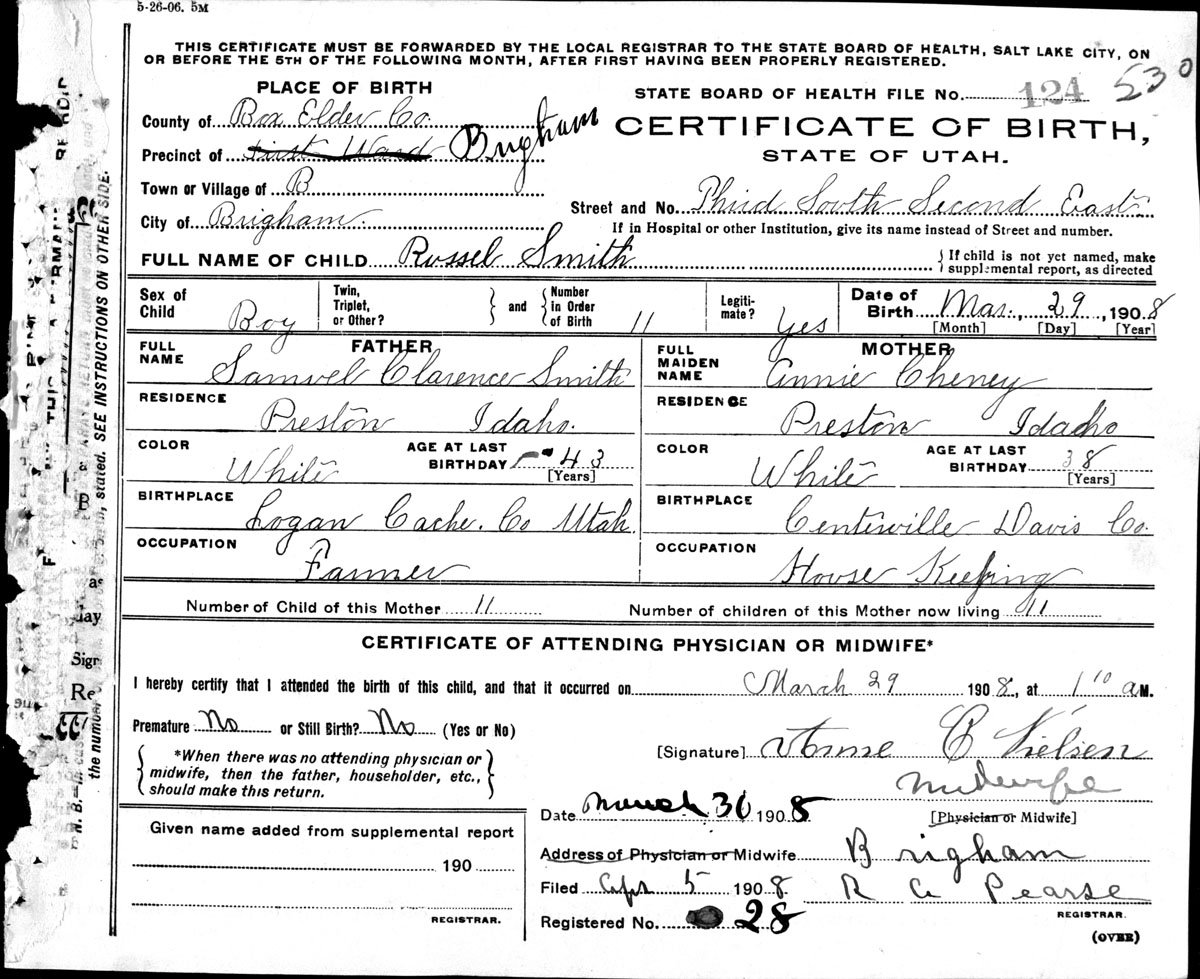 5-26-06. 5M
THIS CERTIFICATE MUST BE FORWARDED BY THE LOCAL REGISTRAR TO THE STATE BOARD OF HEALTH, SALT LAKE CITY, ON
OR BEFORE THE 5TH OF THE FOLLOWING MONTH, AFTER FIRST HAVING BEEN PROPERLY REGISTERED.
PLACE OF BIRTH
STATE BOARD OF HEALTH FILE No. 124 530
County of Box Elder Co.
CERTIFICATE OF BIRTH,
Precinct of First Ward Brigham
STATE OF UTAH.
Town or Village of B
Street and No. Third South Second East
City of Brigham.
If in Hospital or other Institution, give its name instead of Street and number.
FULL NAME OF CHILD Russel Smith
If child is not yet named, make
supplemental report, as directed
Sex of Child Boy
Twin, Triplet, or Other?
and
Number in Order of Birth 11
Legiti-mate? Yes
Date of Birth Mar. 29, 1908
[Month] [Day] [Year]
FATHER
FULL NAME Samuel Clarence Smith
RESIDENCE Preston Idaho.
COLOR White
AGE AT LAST BIRTHDAY 43
[Years]
BIRTHPLACE Logan Cache. Co Utah
OCCUPATION Farmer
MOTHER
FULL MAIDEN NAME Annie Cheney
RESIDENCE Preston Idaho
COLOR White
AGE AT LAST BIRTHDAY 38
[Years]
BIRTHPLACE Centerville Davis Co.
OCCUPATION House Keeping
Number of Child of this Mother 11
Number of children of this Mother now living 11
CERTIFICATE OF ATTENDING PHYSICIAN OR MIDWIFE*
I hereby certify that I attended the birth of this child, and that it occurred on March 29 1908, at 1 10 a M.
Premature No or Still Birth? No (Yes or No)
*When there was no attending physician or
midwife, then the father, householder, etc.,
should make this return.
[Signature] Anne C Nielsen
Midwife
[Physician or Midwife]
Date March 30 1908
Address of Physician or Midwife Brigham
Filed Apr 5 1908 R G Pearse
REGISTRAR.
Registered No. 28
(OVER)
Given name added from supplemental report
190
REGISTRAR.
stated. SEE INSTRUCTIONS ON OTHER SIDE.
the number
N. B.
as
day
Sign
Re